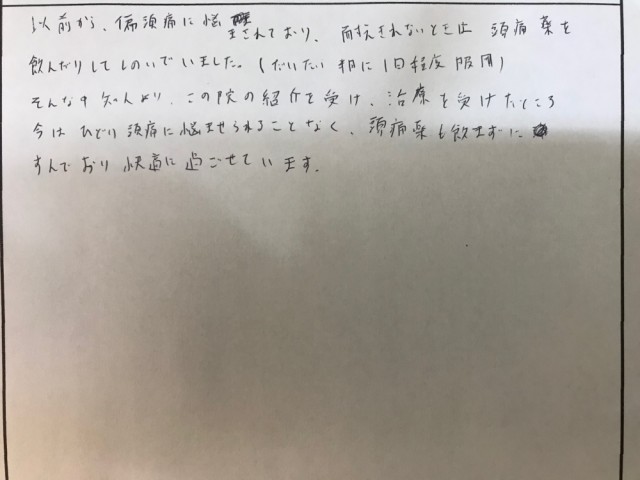 以前から、偏頭痛に悩まされており、耐えきれないときは 頭痛薬を
飲んだりしてしのいでいました。(だいたい 月に1回程度服用)
そんな中 知人より、この院の紹介を受け、治療を受けたところ
今は ひどい頭痛に悩ませられることなく、頭痛薬も飲まずに
すんでおり 快適に過ごせています。